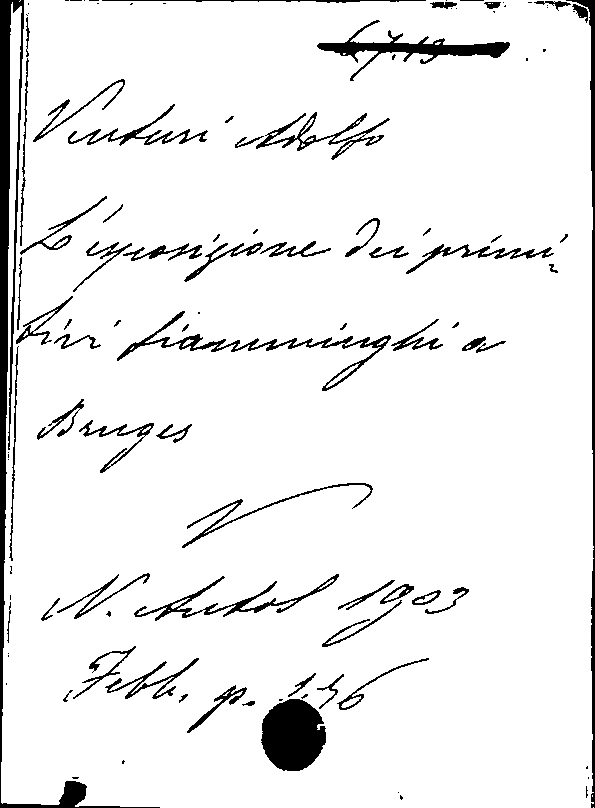 Venturi Adolfo
L'esposizione dei primi-
tivi fiamminghi a
Bruges
V
N. Antol 1903
Febb. p.